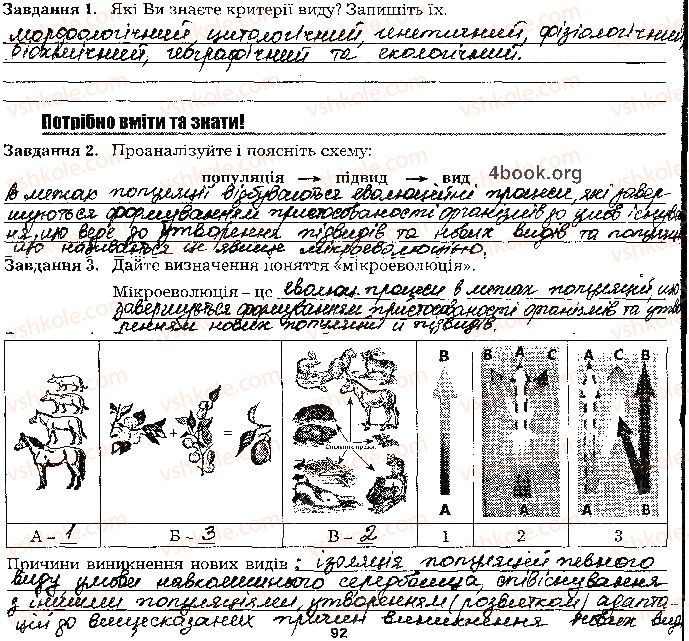 Завдання 1. Які Ви знаєте критерії виду? Запишіть їх.
морфологічний, цитологічний, генетичний, фізіологічний,
біохімічний, географічний та екологічний.
Потрібно вміти та знати!
Завдання 2. Проаналізуйте і поясніть схему:
популяція → підвид → вид
4book.org
В межах популяції відбуваються еволюційні процеси, які завер-
шуються формуванням пристосованості організмів до умов існува
ня, що веде до утворення підвидів та нових видів та популяц
називається явище мікроеволюцією.
Завдання 3. Дайте визначення поняття «мікроеволюція».
Мікроеволюція – це еволюц. процеси в межах популяцій, що
завершується формуванням пристосованості організмів та утво
ренням нових популяцій й підвидів.
B B A C A C B
Спільний предок
A A B C A B
А – 1 Б – 3 В – 2 1 2 3
Причини виникнення нових видів : ізоляція популяцій певного
виду умови навколишнього середовища, співіснування
з іншими популяціями, утворенням (розвитком) адапта-
цій до вищесказаних причин виникнення нових вид
92
vshkole.com